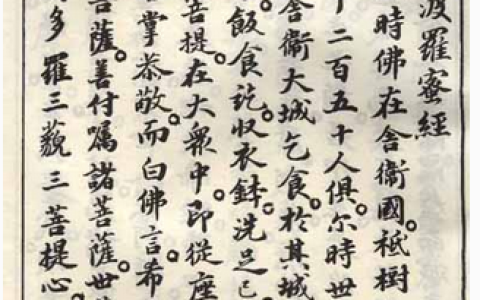 波羅蜜經
時佛在舍衞國。祗樹
千二百五十人俱。尔時世
舍衞大城乞食。於其城
飯食訖。收衣鉢。洗足已。
菩提。在大衆中。即從座
掌恭敬。而白佛言。希
菩薩。善付囑諸菩薩。世
多羅三藐三菩提心。